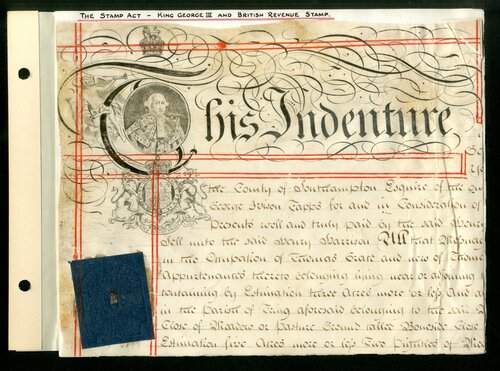 THE STAMP ACT - KING GEORGE III AND BRITISH REVENUE STAMP.
This Indenture
the County of Southampton Esquire of the
George Ivison Tapps for and in Consideration of
Presents well and truly paid by the said Henry
Sell unto the said Henry Harrison All that Messuage
in the Occupation of Thomas Grace and now of Thomas
Appurtenances thereto belonging lying near or adjoining
containing by Estimation three Acres more or less And
in the Parish of Tring aforesaid belonging to the said
Close of Meadow or Pasture Ground called Close
Estimation five Acres more or less Two of